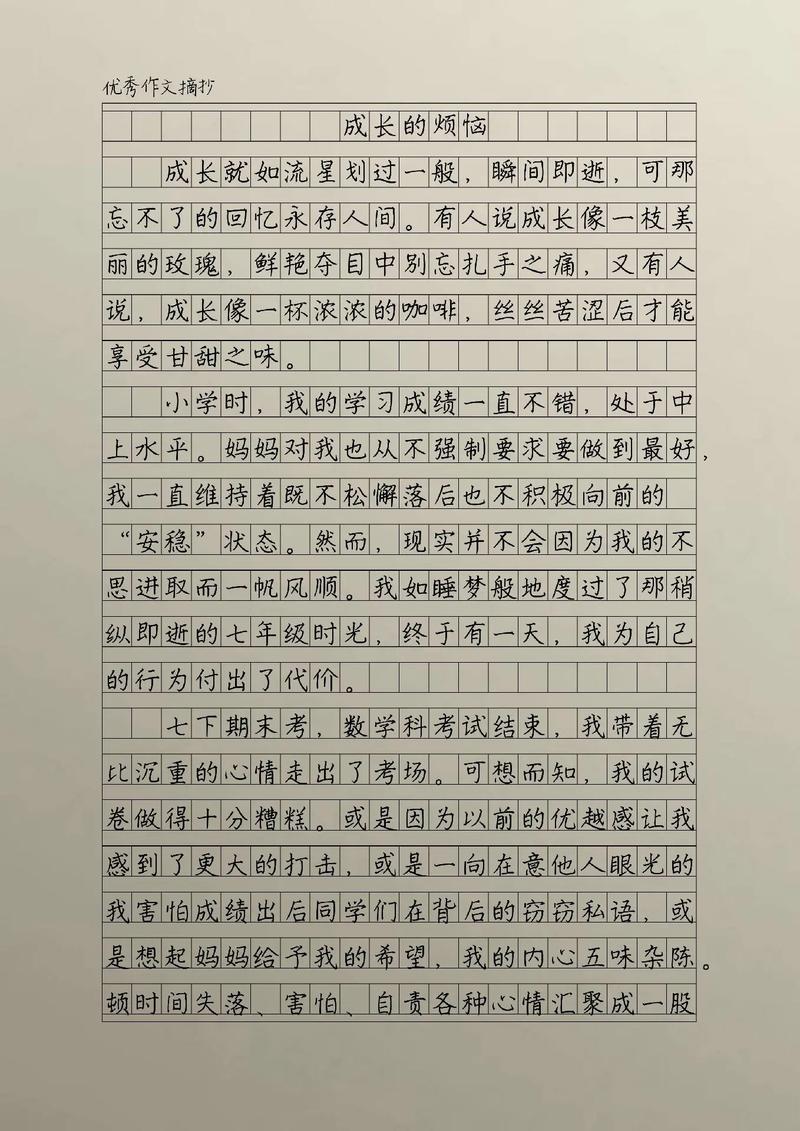 优秀作文摘抄
成长的烦恼
成长就如流星划过一般，瞬间即逝，可那
忘不了的回忆永存人间。有人说成长像一枝美
丽的玫瑰，鲜艳夺目中别忘扎手之痛，又有人
说，成长像一杯浓浓的咖啡，丝丝苦涩后才能
享受甘甜之味。
小学时，我的学习成绩一直不错，处于中
上水平。妈妈对我也从不强制要求要做到最好，
我一直维持着既不松懈落后也不积极向前的
“安稳”状态。然而，现实并不会因为我的不
思进取而一帆风顺。我如睡梦般地度过了那稍
纵即逝的七年级时光，终于有一天，我为自己
的行为付出了代价。
七下期末考，数学科考试结束，我带着无
比沉重的心情走出了考场。可想而知，我的试
卷做得十分糟糕。或是因为以前的优越感让我
感到了更大的打击，或是一向在意他人眼光的
我害怕成绩出后同学们在背后的窃窃私语，或
是想起妈妈给予我的希望，我的内心五味杂陈。
顿时间失落、害怕、自责各种心情汇聚成一股